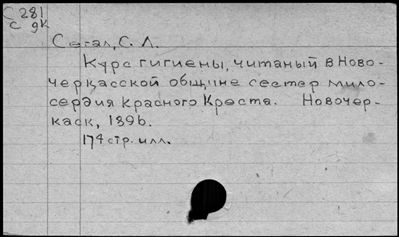 С 281
С 9К
Сегал, С. Л.
Курс гигиены, читаный в Ново-
черкасской общине сестер мило-
сердия Красного Креста. Новочер-
каск, 1896.
174 стр. илл.